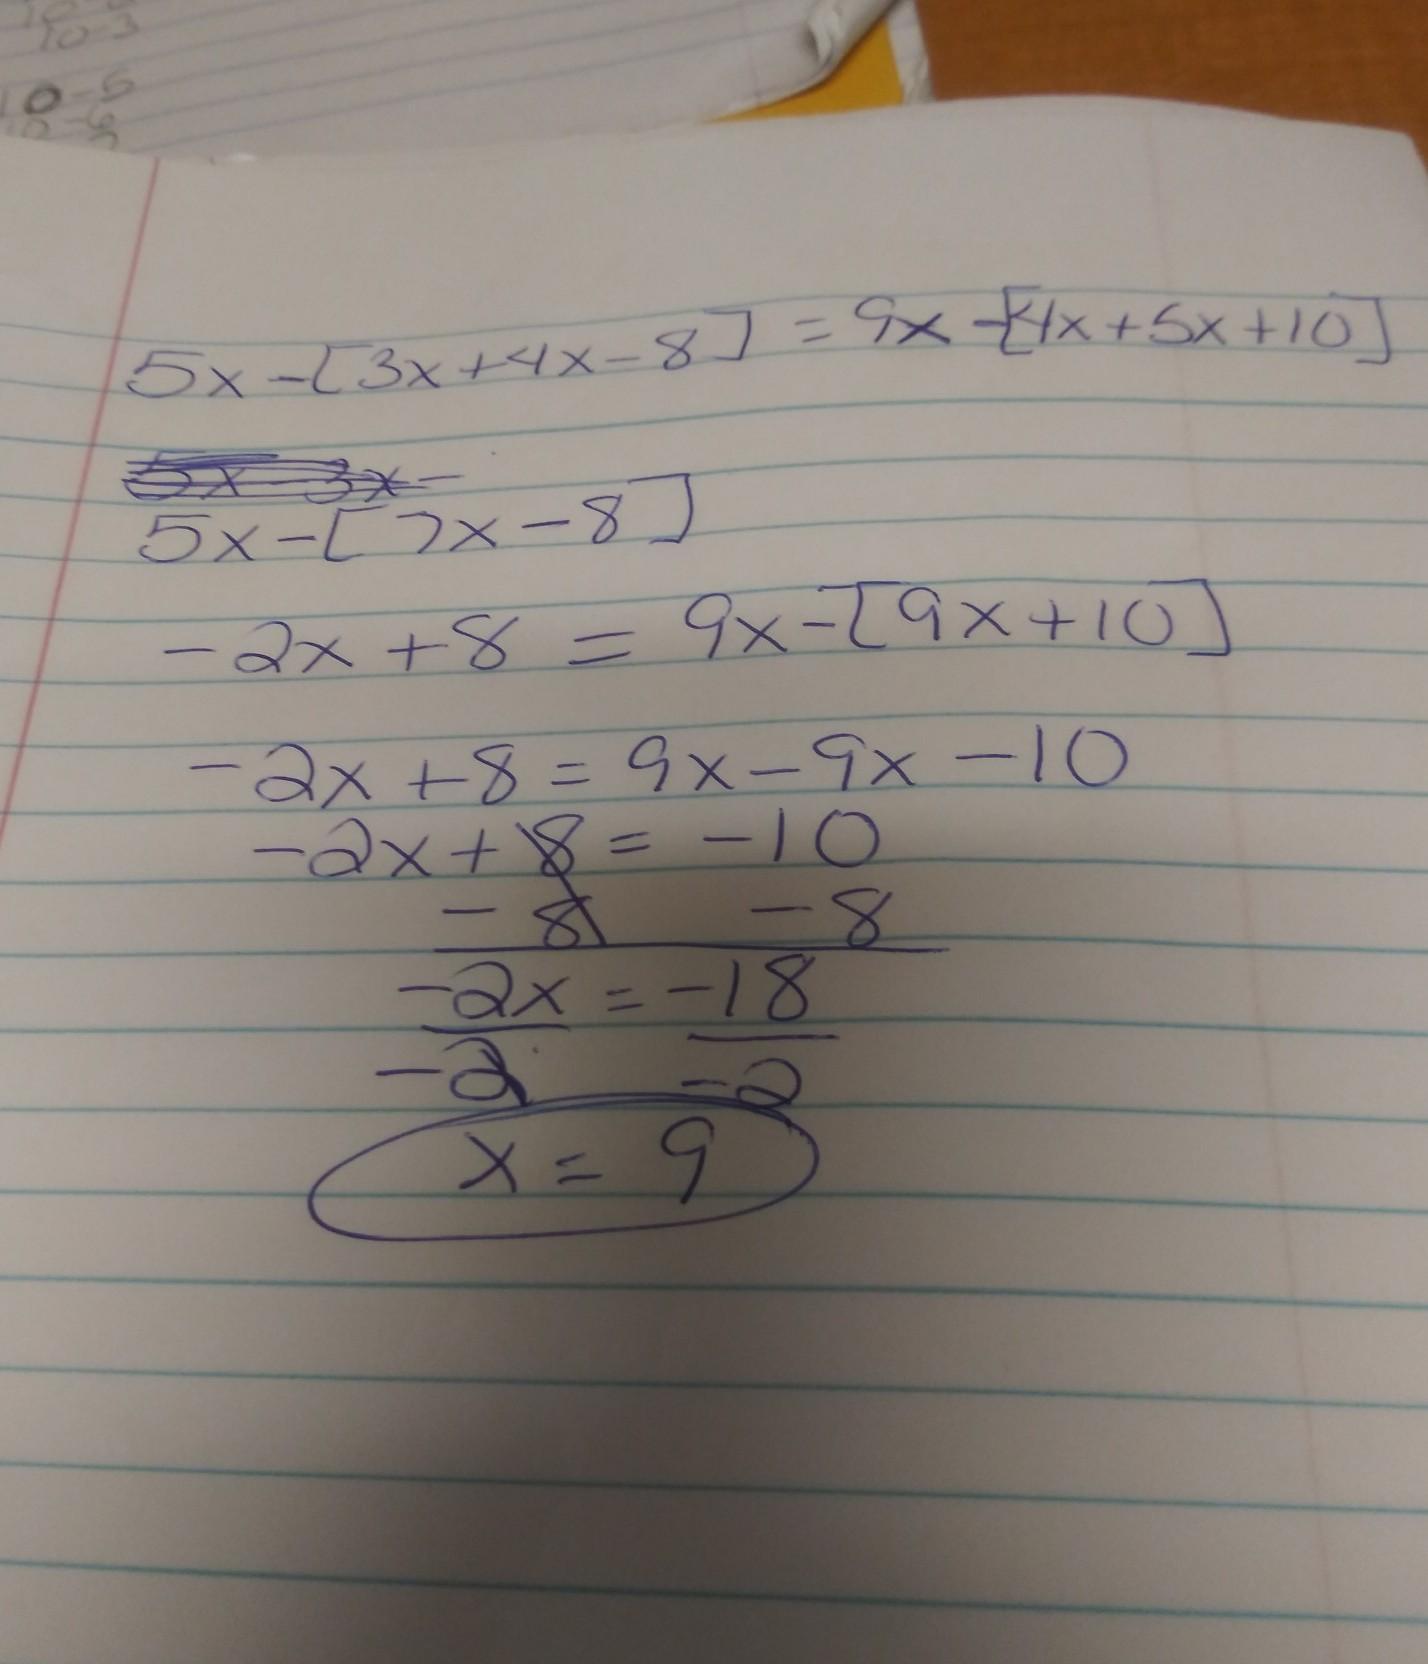 10-3
10-6
5x-[3x+4x-8] = 9x-[4x+5x+10]
5x-3x-
5x-[7x-8]
-2x+8 = 9x-[9x+10]
-2x+8 = 9x-9x-10
-2x+8 = -10
-8 -8
-2x = -18
-2 -2
x = 9